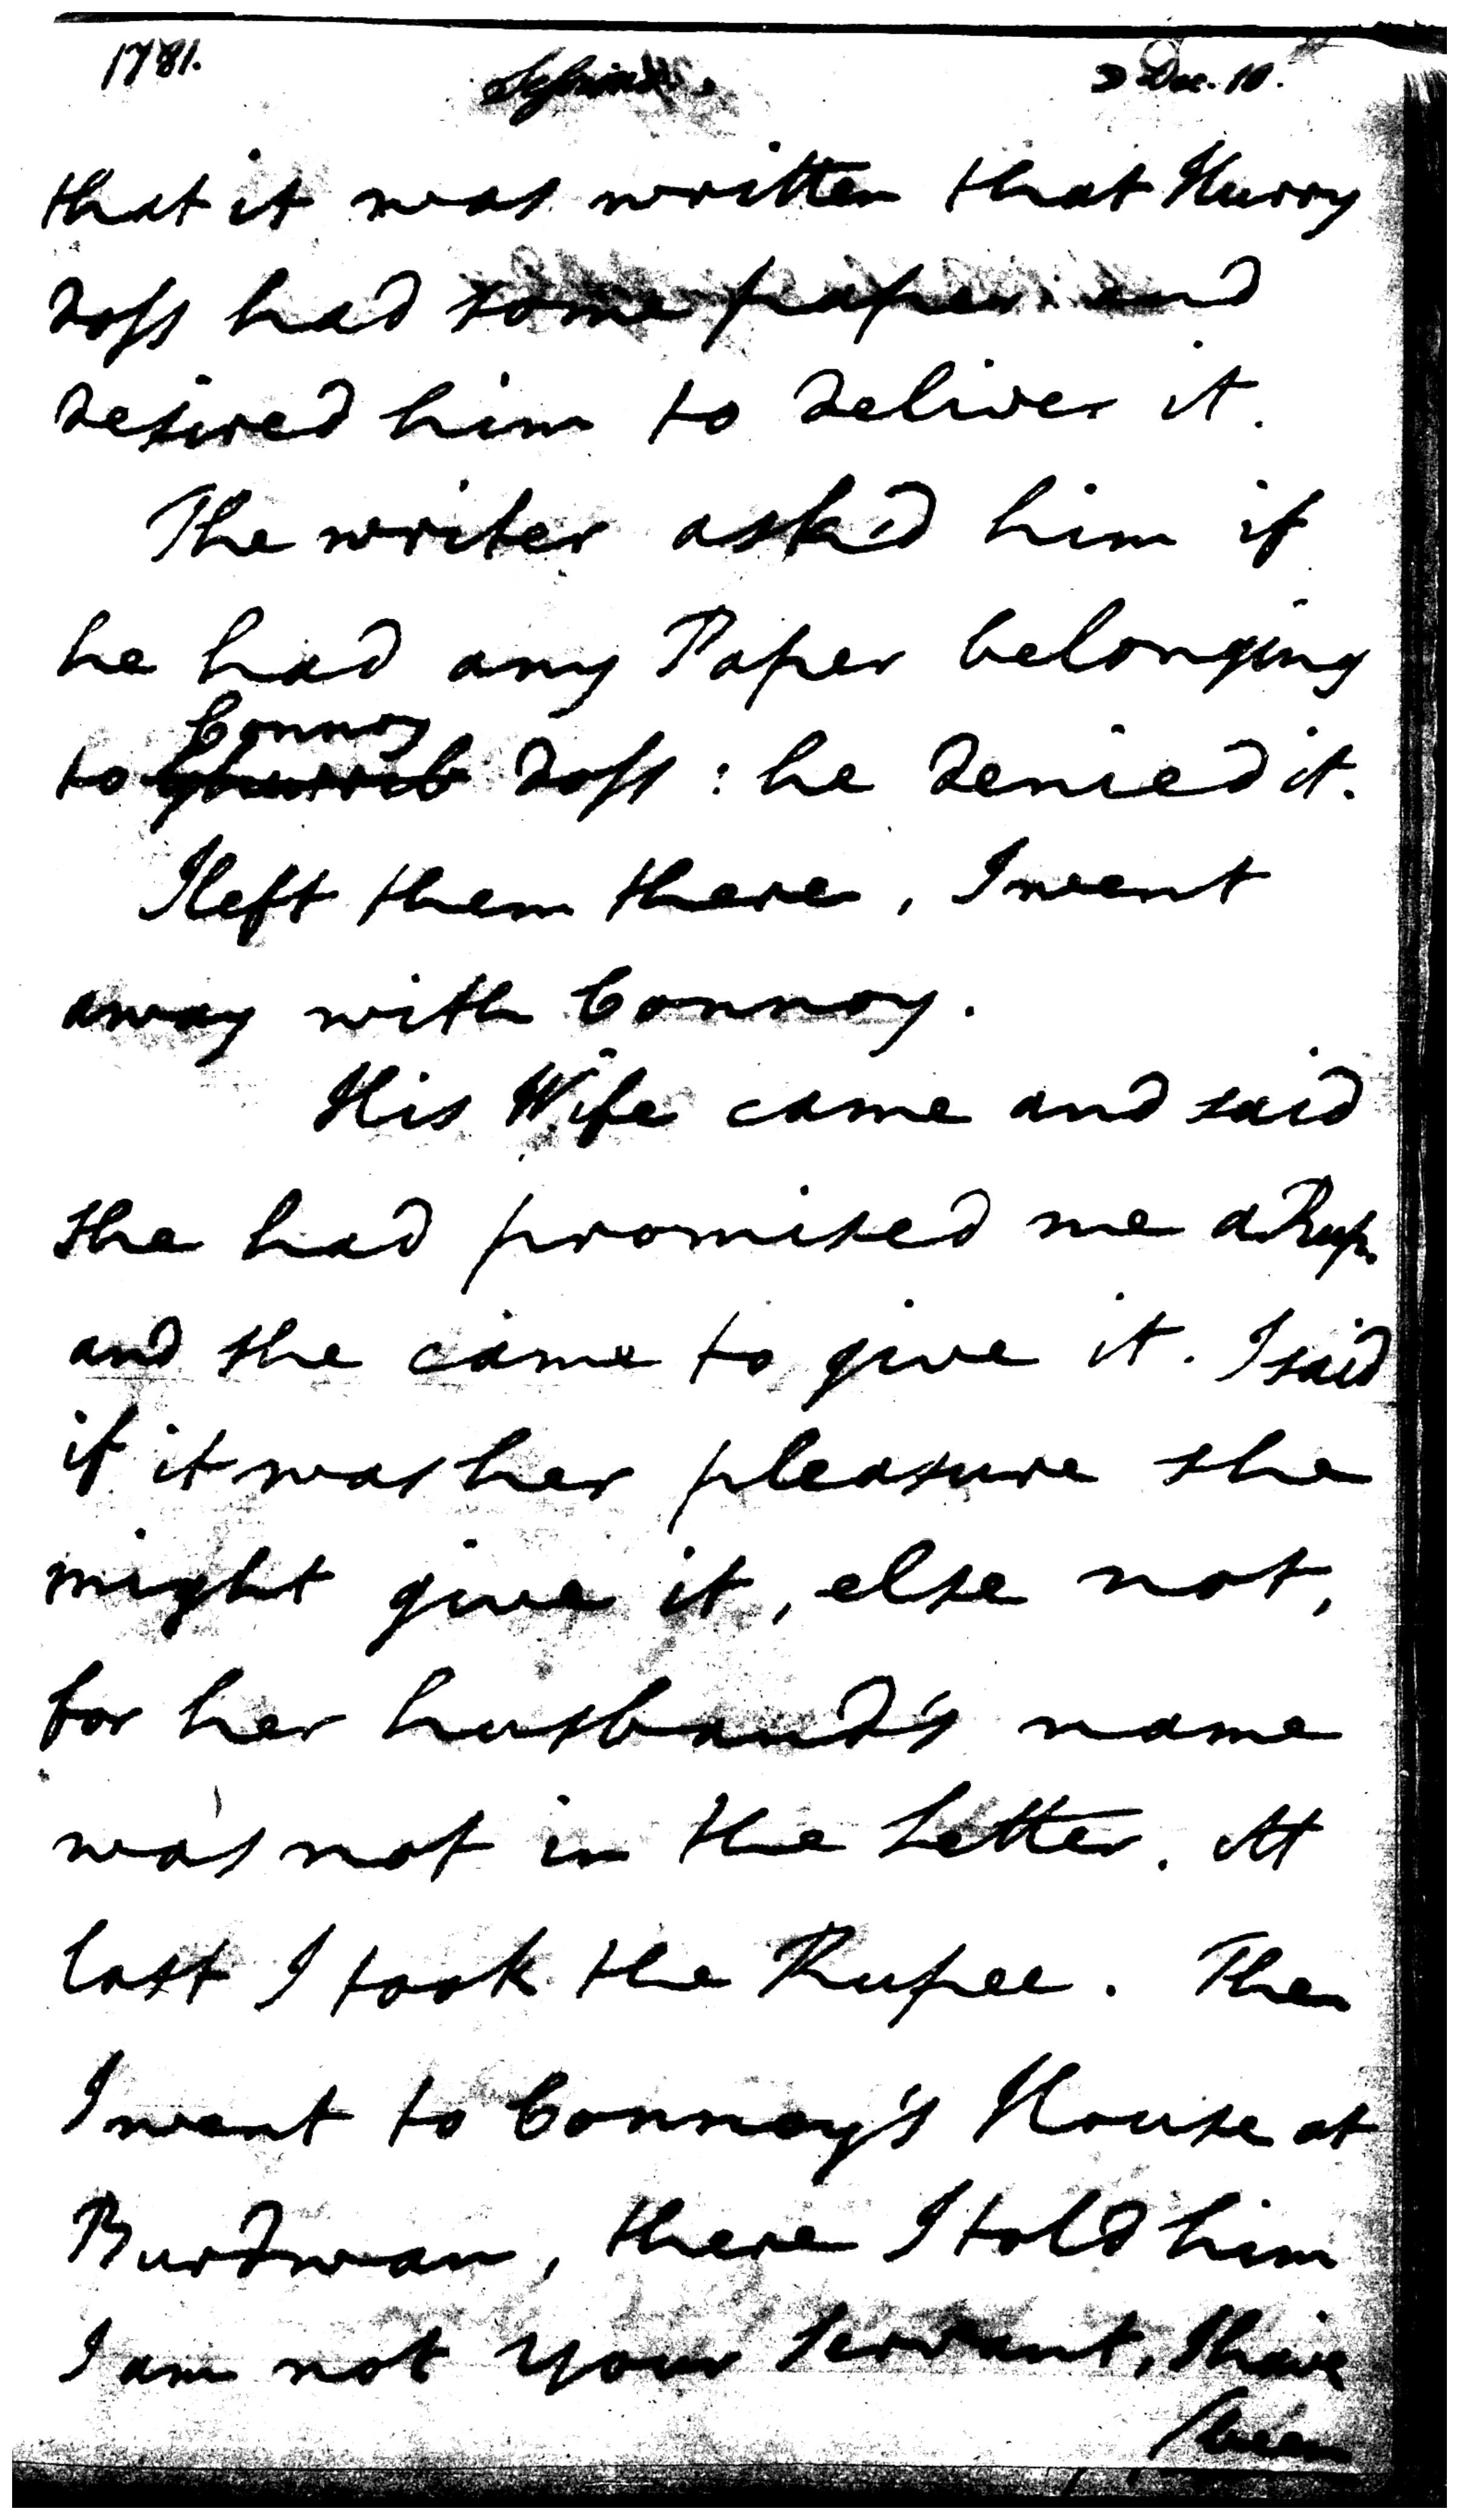 1781. Dec. 10.
that it was written that Hurry
doss had some paper and
desired him to deliver it.
The writer ask'd him if
he had any Paper belonging
Connoy
to doss : he denied it.
I left them there, I went
away with Connoy.
His Wife came and said
she had promised me a Rup.
and she came to give it. I said
if it was her pleasure she
might give it, else not,
for her husband's name
was not in the Letter. At
last I took the Rupee. Then
I went to Connoy's House at
Burdwan, there I told him
I am not your servant, I have
been